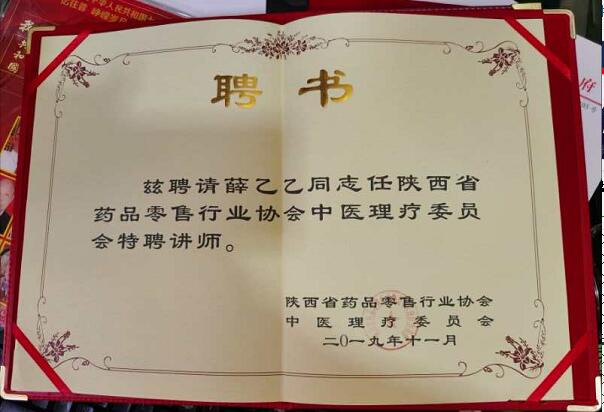 聘书
兹聘请薛乙乙同志任陕西省
药品零售行业协会中医理疗委员
会特聘讲师。
陕西省药品零售行业协会
中医理疗委员会
二〇一九年十一月
府